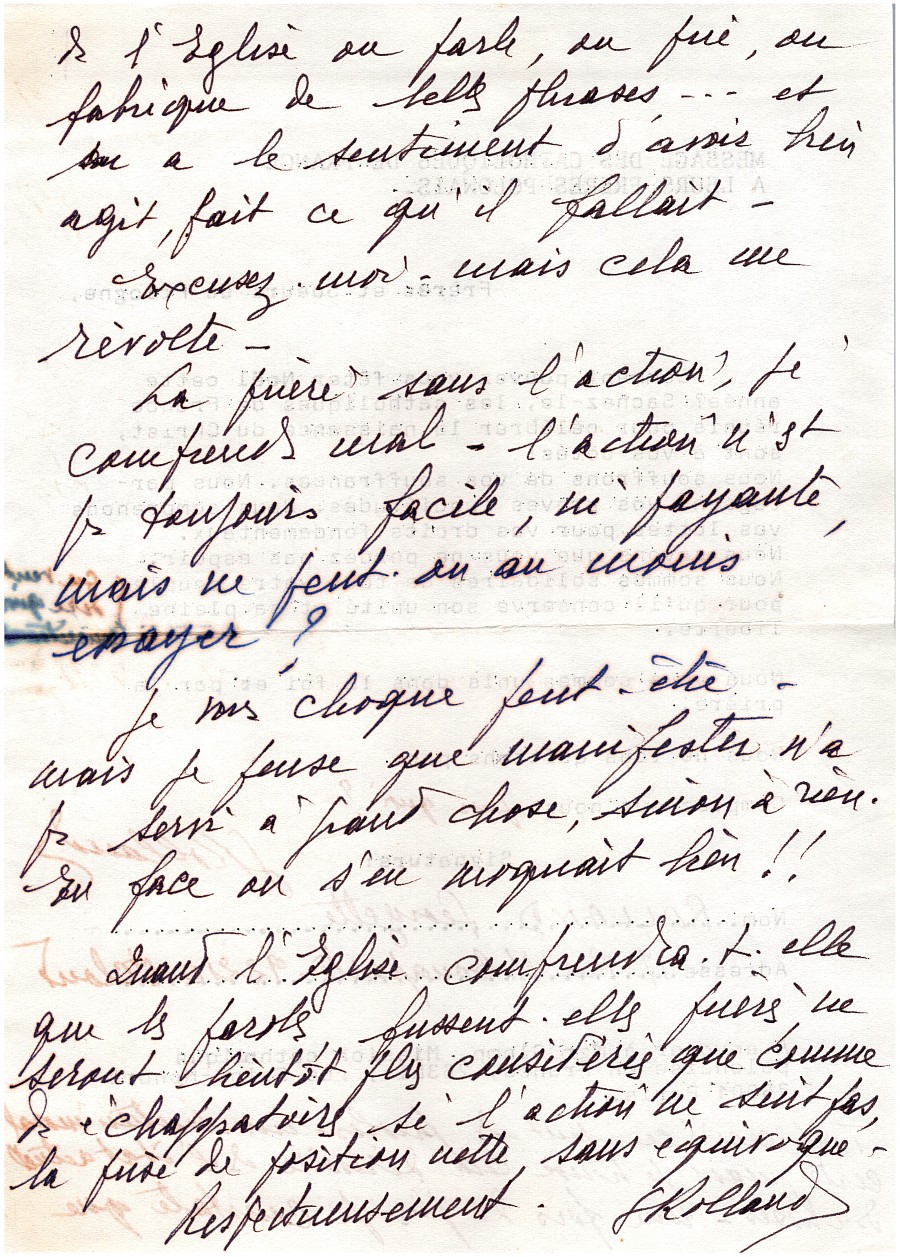 de l'Eglise on parle, on prie, on
fabrique de belles phrases --- et
on a le sentiment d'avoir bien
agit, fait ce qu'il fallait -
Excusez-moi - mais cela me
révolte -
La prière sans l'action, je
comprends mal - l'action n'est
pas toujours facile, ni payante,
mais ne peut on au moins
essayer ?
Je vous choque peut-être -
mais je pense que manifester n'a
pas servi à grand chose, sinon à rien.
En face on s'en moquait bien !!
Quand l'Eglise comprendra-t-elle
que les paroles fussent-elles prières ne
seront bientôt plus considérées que comme
des échappatoires si l'action ne suit pas,
la prise de position nette, sans équivoque -
Respectueusement. GRolland